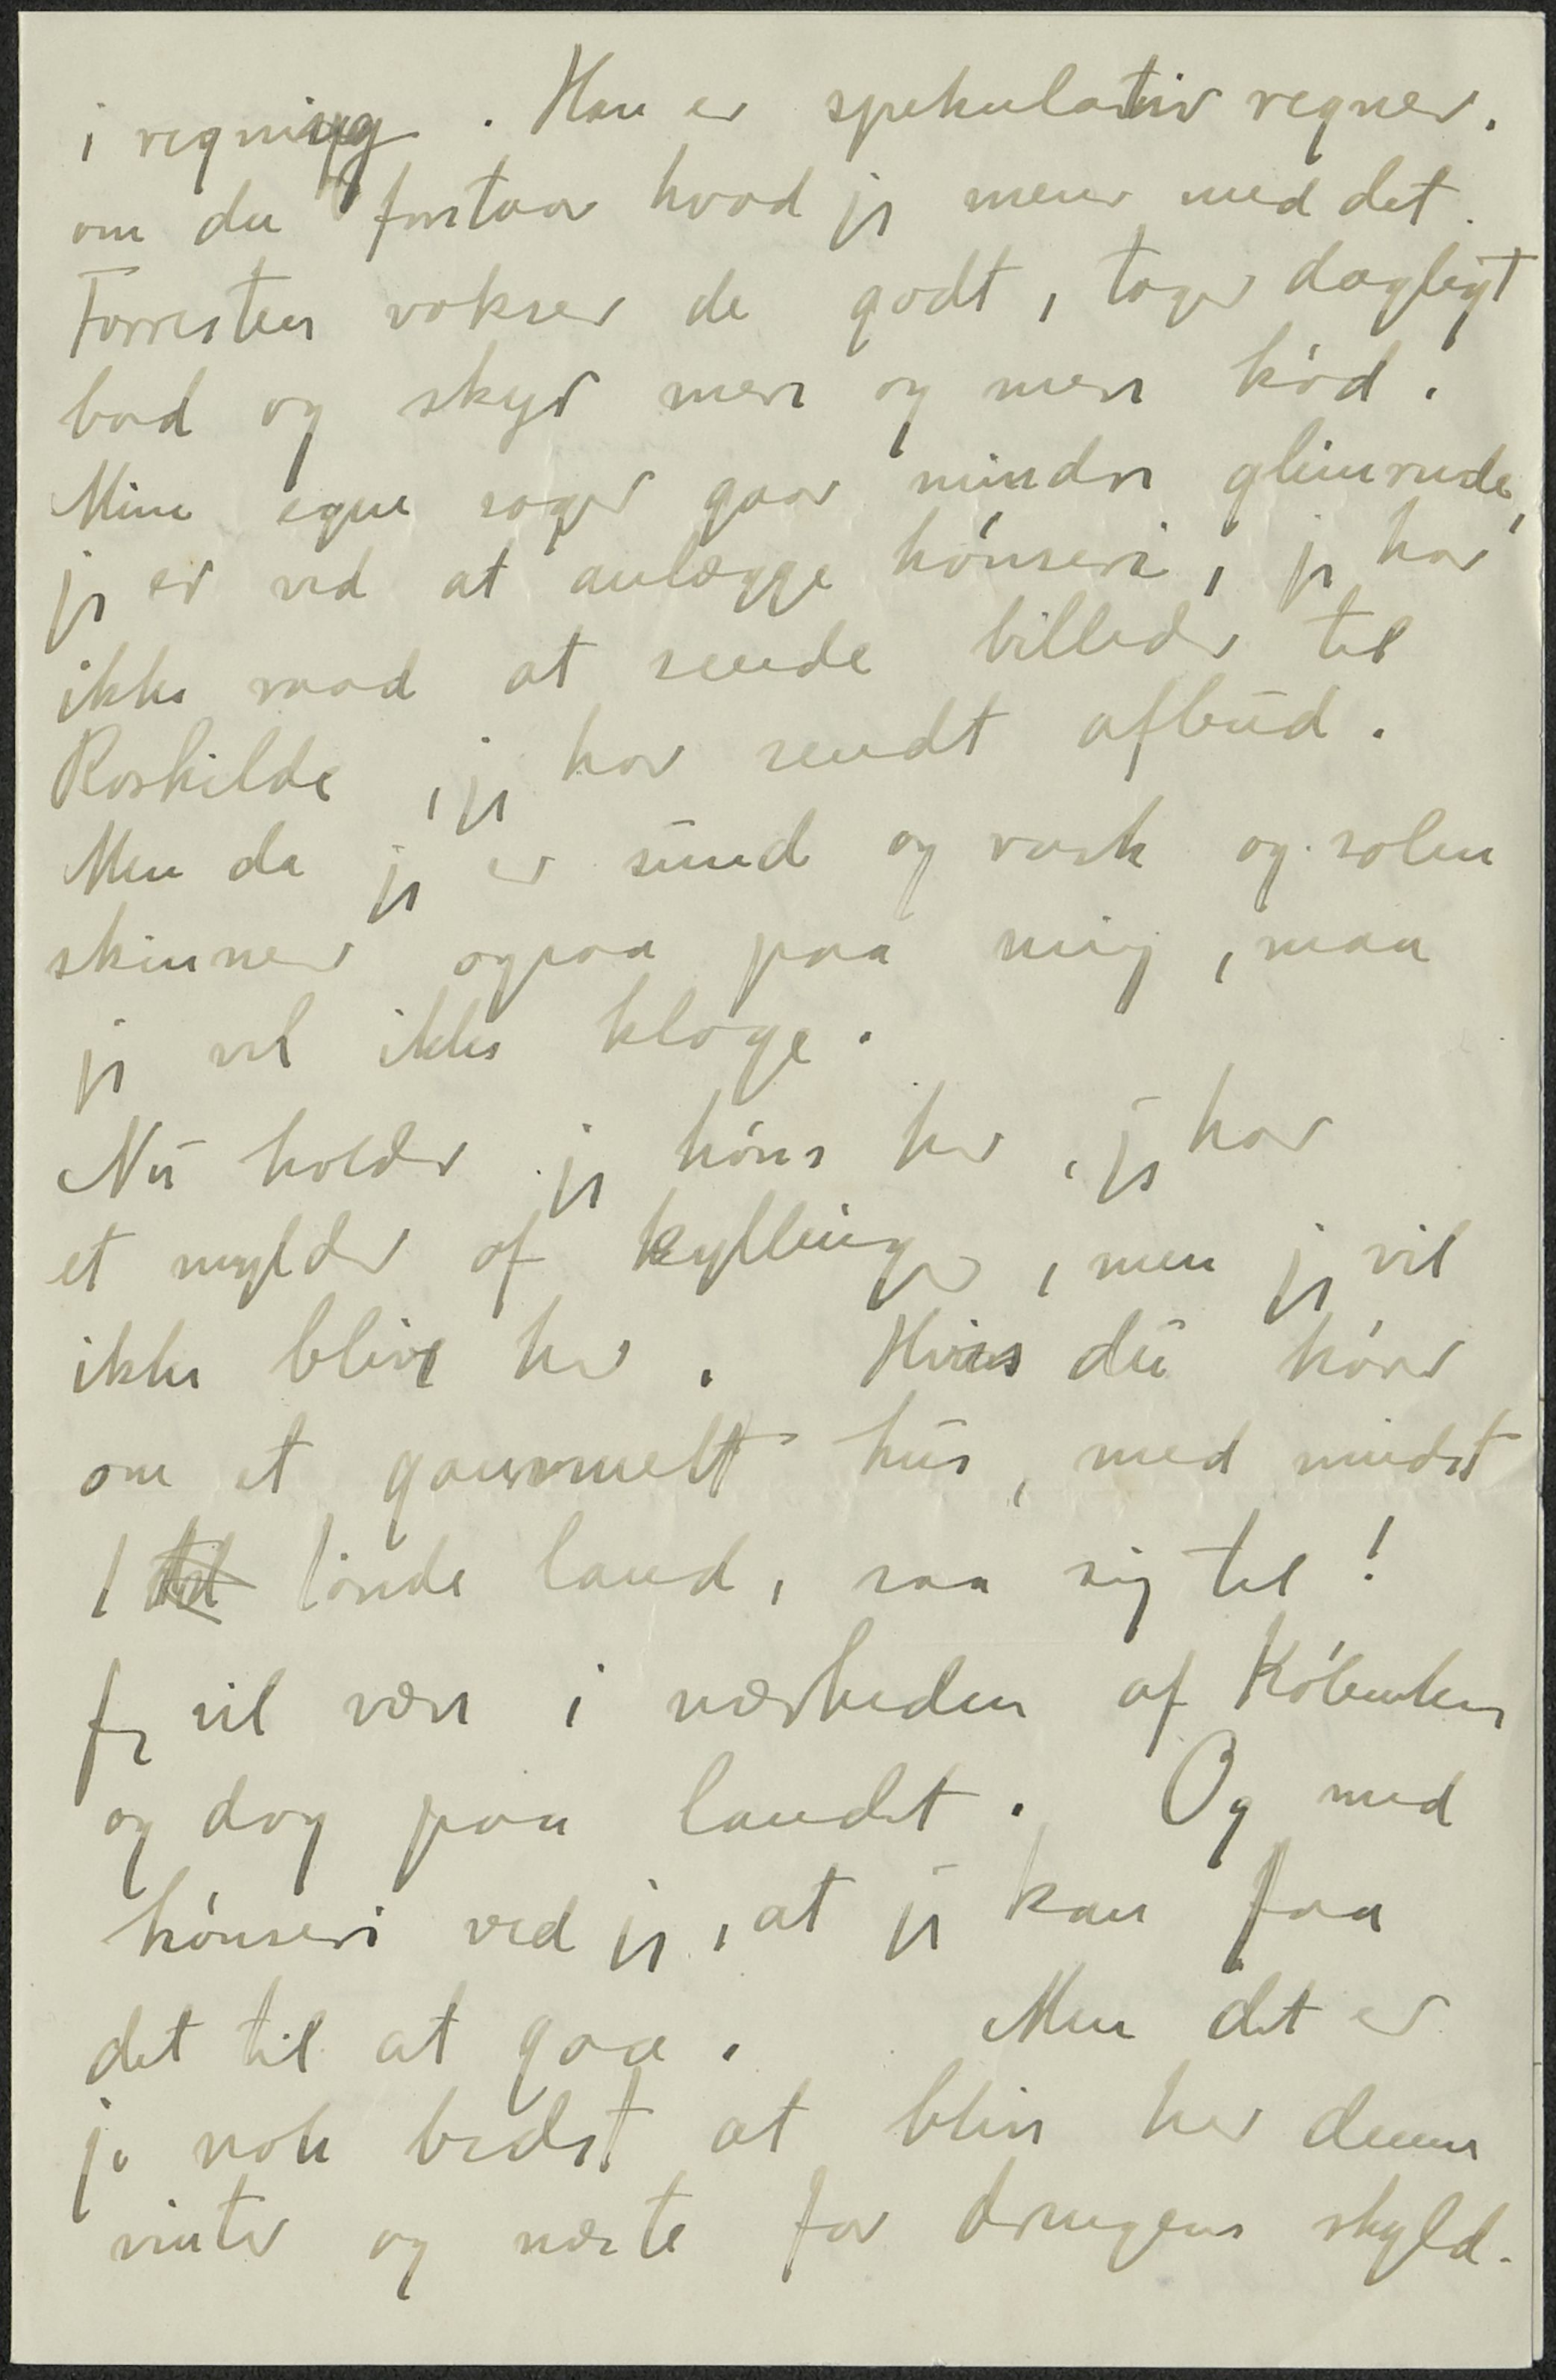 i regning. Han er spekulativ regner.
om du forstaar hvad jeg mener med det.
Forresten vokser de godt, tager dagligt
bad og skyr mere og mere kód.
Mine egne sager gaar mindre glimrende,
jeg er ved at anlægge hónseri, jeg har
ikke raad at sende billeder til
Roskilde, jeg har sendt afbud.
Men da jeg er sund og rask og solen
skinner ogsaa paa mig, maa
jeg vel ikke klage.
Nu holder jeg hóns her, jeg har
et mylder af kyllinger, men jeg vil
ikke blive her. Hvis du hórer
om et gammelt hus, med mindst
1 tónde land, saa sig til!
Jeg vil være i nærheden af Kóbenhavn
og dog paa landet. Og med
hónseri ved jeg, at jeg kan faa
det til at gaa. Men det er
jo nok bedst at blive her denne
vinter og næste for drengens skyld.